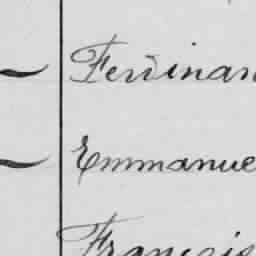 Ferdinan
Emmanue
Francis